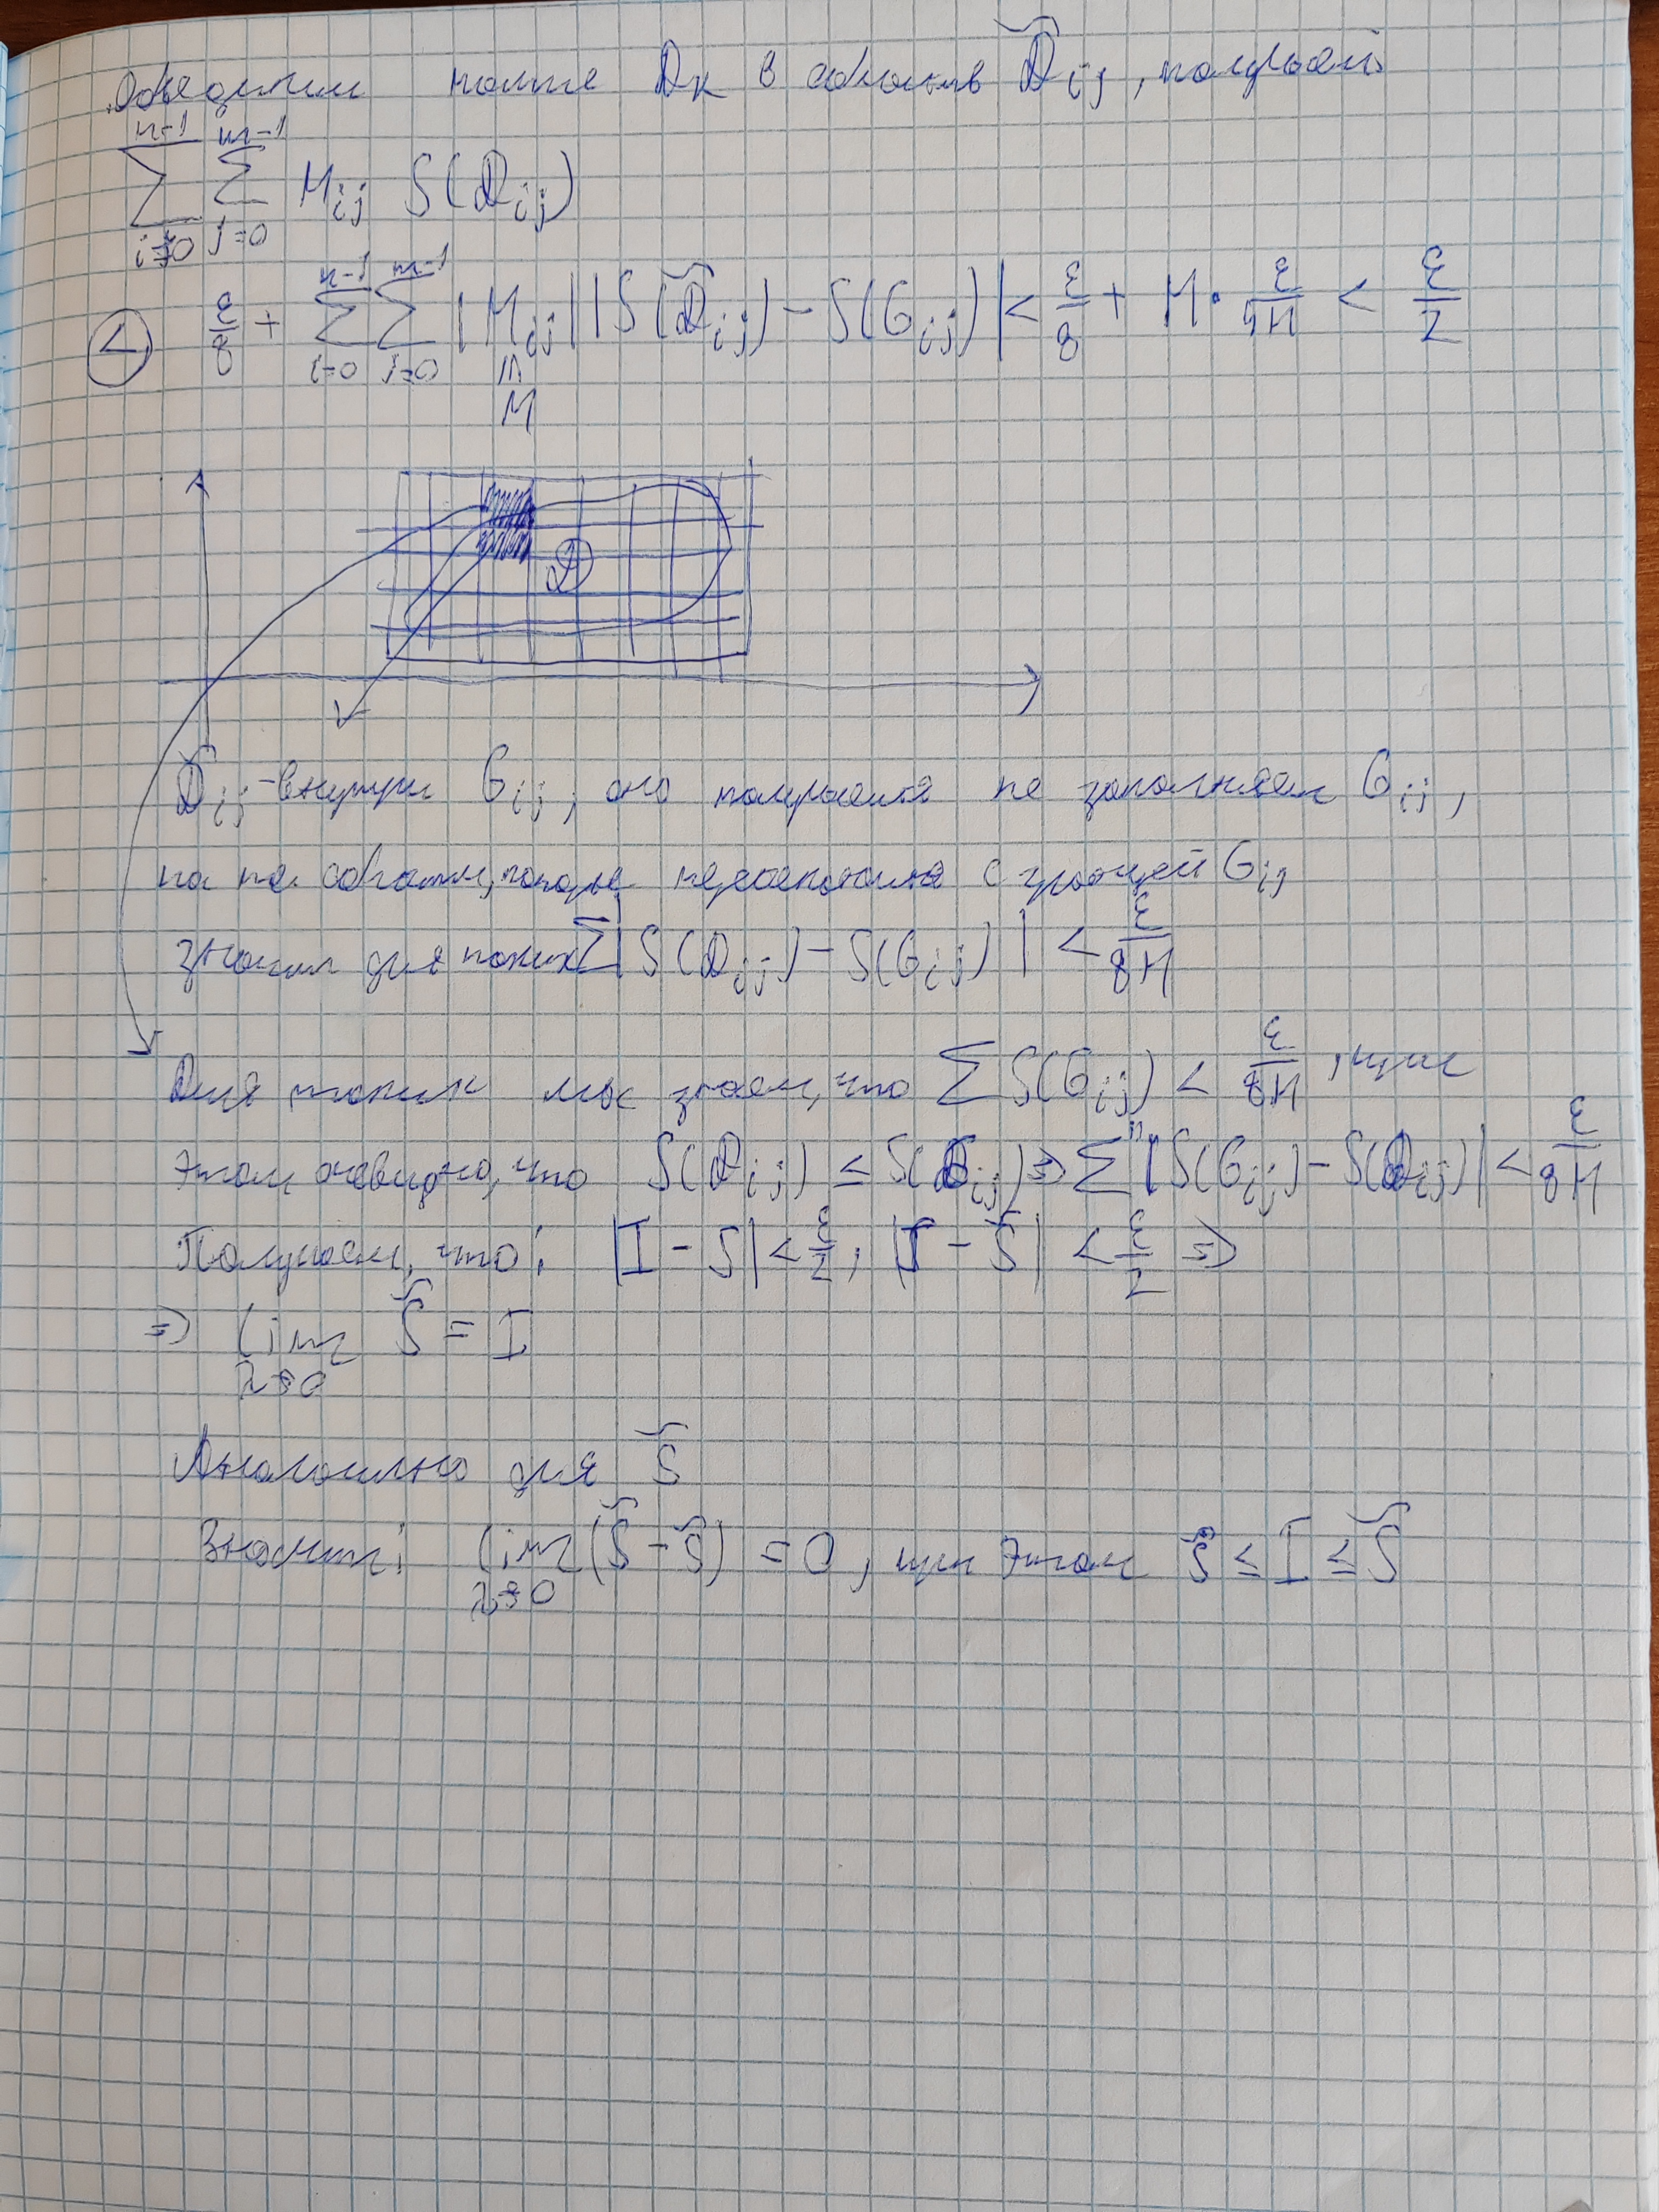 Объединим такие Dₖ в область D̃ᵢⱼ, получаем
n-1 m-1
∑ ∑ Mᵢⱼ S(Dᵢⱼ)
i=0 j=0
< ε/8 + ∑ᵢ₌₀ⁿ⁻¹ ∑ⱼ₌₀ᵐ⁻¹ |Mᵢⱼ| |S(D̃ᵢⱼ) - S(Gᵢⱼ)| < ε/8 + M · ε/4M < ε/2
M
D
D̃ᵢⱼ - внутри Gᵢⱼ, оно получается не заполняет Gᵢⱼ,
на те области, которые пересекаются с границей Gᵢⱼ
значит для таких ∑|S(Dᵢⱼ) - S(Gᵢⱼ)| < ε/8M
Для таких мы знаем, что ∑ S(Gᵢⱼ) < ε/8M, при
этом очевидно, что S(Dᵢⱼ) ≤ S(Gᵢⱼ) ⇒ ∑ |S(Gᵢⱼ) - S(Dᵢⱼ)| < ε/8M
Получаем, что: |I - S| < ε/2; |S - S̃| < ε/2 ⇒
⇒ lim S̃ = I
λ→0
Аналогично для s̃
Значит: lim (S̃ - s̃) = 0, при этом s̃ ≤ I ≤ S̃
λ→0